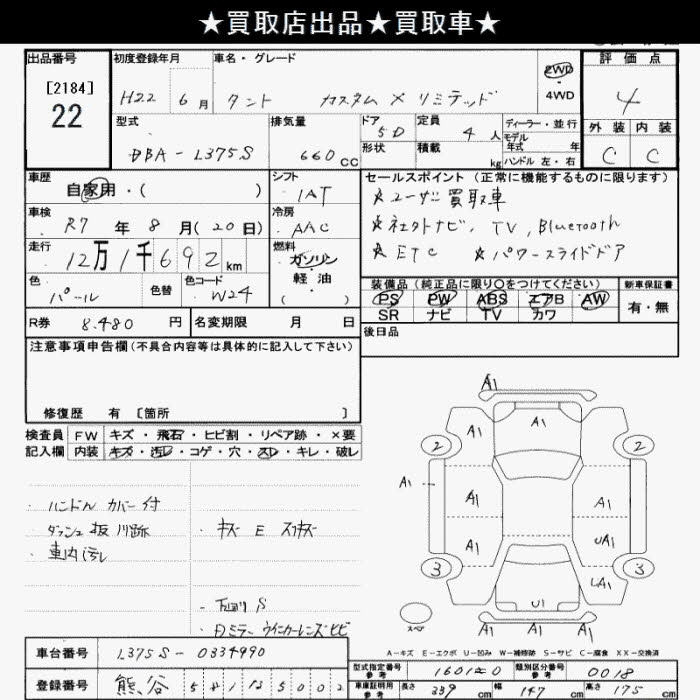 ★買取店出品★買取車★
出品番号 初度登録年月 車名・グレード 2WD 4WD 評価点
[2184] 22 H22 6月 タント カスタム X リミテッド 4
型式 排気量 ドア 5D 定員 4人 ディーラー・並行 外装 内装
DBA-L375S 660cc 形状 積載 kg モデル年式 年 ハンドル 左・右 C C
車歴 自家用・( ) シフト IAT セールスポイント(正常に機能するものに限ります)
★ユーザー買取車
車検 R7年8月(20日) 冷房 AAC ★社外ナビ, TV, Bluetooth
走行 12万1千692km 燃料 ガソリン 軽油 ( ) ★ETC ★パワースライドドア
色 パール 色替 色コード W24 装備品(純正品に限り○をつけてください) 新車保証書
PS PW ABS エアB AW 有・無
SR ナビ TV カワ
R券 8.480円 名変期限 月 日 後日品
注意事項申告欄(不具合内容等は具体的に記入して下さい)
修復歴 有 [箇所 ]
検査員記入欄 FW キズ・飛石・ヒビ割・リペア跡・×要
内装 キズ・汚レ・コゲ・穴・スレ・キレ・破レ
・ハンドル カバー付
・車内汚レ
・キズ E スリキズ
・下廻り S
ウインカーレンズヒビ
A1
A1
2 A1 A1 2
A1 A1 A1
A1 UA1
3 UA1 3
U1
A1 A1 A1
A-キズ E-エクボ U-凹み W-補修跡 S-サビ C-腐食 XX-交換済
車台番号 L375S-0334990
型式指定番号 参考 類別区分番号 参考 0018
登録番号 熊谷 581 5002
車庫証明用 参考 長さ 339cm 幅 147cm 高さ 175cm